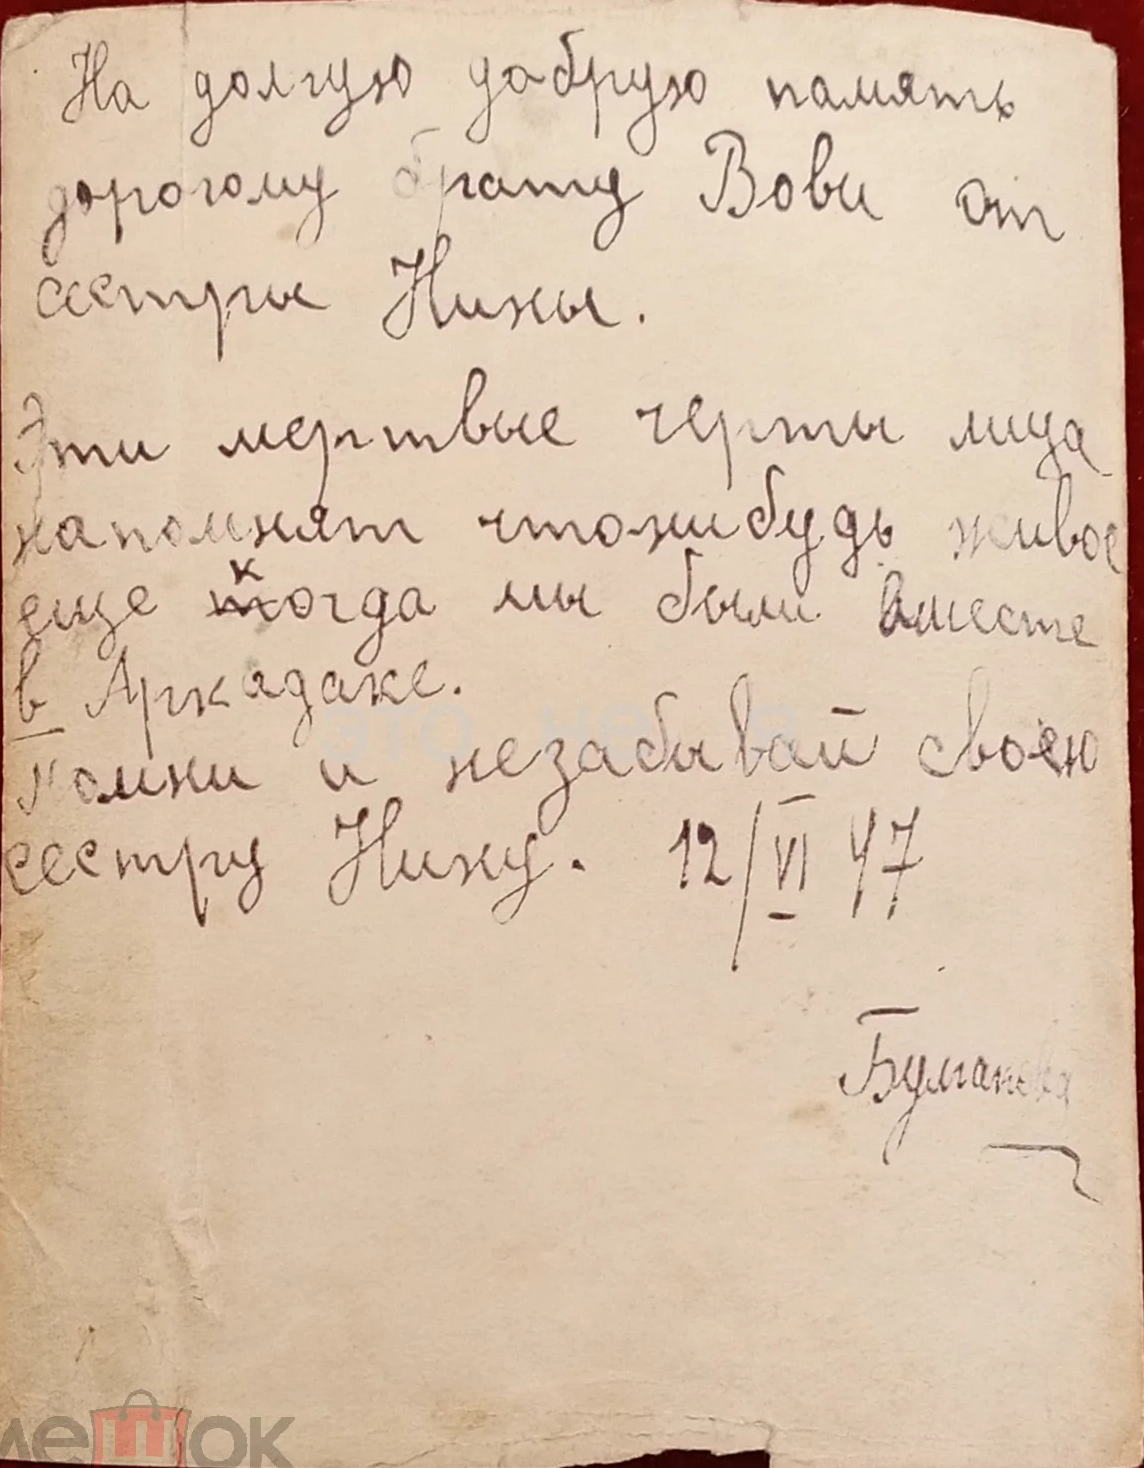 На долгую добрую память
дорогому брату Вови от
сестры Нины.
Эти мертвые черты лица
напомнят чтонибудь живое
еще когда мы были вместе
в Аркадаке.
Помни и незабывай свою
сестру Нину. 12/VI 47
Булганова
мешок